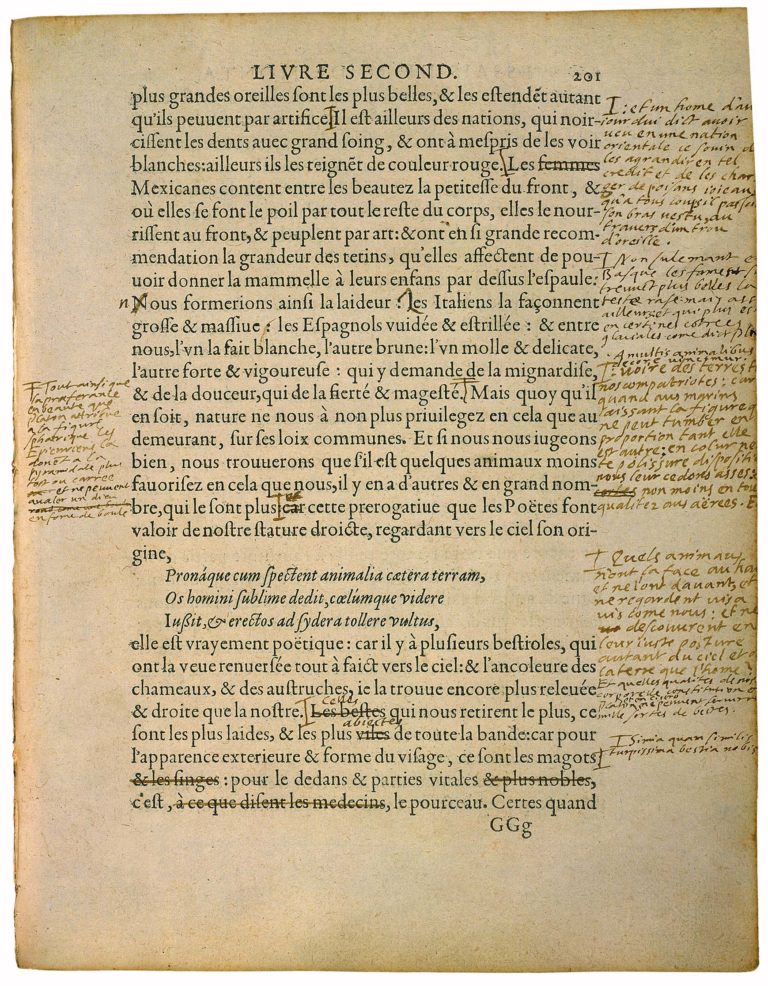 LIVRE SECOND. 201
plus grandes oreilles ſont les plus belles, & les eſtendẽt autant
qu'ils peuuent par artifice. Il eſt ailleurs des nations, qui noir-
ciſſent les dents auec grand ſoing, & ont à meſpris de les voir
blanches: ailleurs ils les teignẽt de couleur rouge. Les femmes
Mexicanes content entre les beautez la petiteſſe du front, &
où elles ſe font le poil par tout le reſte du corps, elles le nour-
riſſent au front, & peuplent par art: & ont en ſi grande recom-
mendation la grandeur des tetins, qu'elles affectent de pou-
uoir donner la mammelle à leurs enfans par deſſus l'eſpaule:
n Nous formerions ainſi la laideur: les Italiens la façonnent
groſſe & maſſiue: les Eſpagnols vuidée & eſtrillée: & entre
nous, l'vn la fait blanche, l'autre brune: l'vn molle & delicate,
l'autre forte & vigoureuſe: qui y demande de la mignardiſe,
& de la douceur, qui de la fierté & mageſté. Mais quoy qu'il
en ſoit, nature ne nous à non plus priuilegez en cela que au
demeurant, ſur ſes loix communes. Et ſi nous nous iugeons
bien, nous trouuerons que s'il eſt quelques animaux moins
fauoriſez en cela que nous, il y en a d'autres & en grand nom-
bre, qui le ſont plus: car cette prerogatiue que les Poëtes font
valoir de noſtre ſtature droicte, regardant vers le ciel ſon ori-
gine,
Pronáque cum ſpectent animalia cætera terram,
Os homini ſublime dedit, cœlúmque videre
Iuſſit, & erectos ad ſydera tollere vultus,
elle eſt vrayement poëtique: car il y à pluſieurs beſtioles, qui
ont la veue renuerſée tout à faict vers le ciel: & l'ancoleure des
chameaux, & des auſtruches, ie la trouue encore plus releuée
& droite que la noſtre. Celles
Les beſtes qui nous retirent le plus, ce
abiectes
ſont les plus laides, & les plus viles de toute la bande: car pour
l'apparence exterieure & forme du viſage, ce ſont les magots
& les ſinges: pour le dedans & parties vitales & plus nobles,
c'eſt, à ce que diſent les medecins, le pourceau. Certes quand
GGg
: et un home d'au
iourdui dict auoir
ueu en une nation
orientale ce souin d
les agrandir en tel
credit et de les char
ger de poisans ioieau
qu'a tous coups il passoit
son bras vestu au
trauers d'un trou
d'oreille.
Non sulemant e
Basque les fames s
treuuet plus belles la
teste rase mais ass
ailleurs et qui plus est
en certenes contrees
glaciales come dict
A multis animalibus
decore vincimur.
voire des terrest
nos compatriotes: car
quand aus marins
laissant la figure q
ne peut tumber en
proportion tant elle
est autre: en colur ne
te polissure dispositi
nous leur cedons asses:
non moins en tou
qualitez aus aerees. E
Quels animau
n'ont la face au hau
et ne l'ont dauant, et
ne regardent vis a
vis come nous: et ne
descouvrent en
leur iuste posture
autant du ciel et d
la terre que l'home?
Et quelles qualites de nos
corporelle constitution
mille sortes de bestes.
Simia quam similis
turpissima bestia nobis
Tout ainsi que
la praeferance
en beaute que
Platon attribue
a la figure
sphaerique les
Epicuriens la
donet a la
pyramidale plus
tost ou carree
et ne peuvent
avaler un dieu
en forme de boule